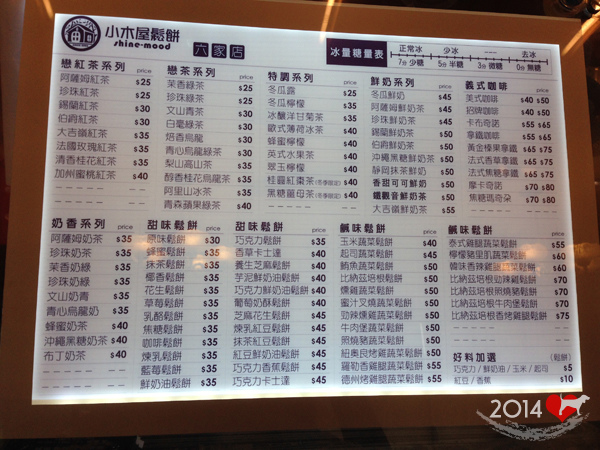 小木屋鬆餅
shine-mood
六家店
冰量糖量表
正常冰 少冰 --- 去冰
7分 少糖 5分 半糖 3分 微糖 0分 無糖
戀紅茶系列 price
阿薩姆紅茶 $25
珍珠紅茶 $25
錫蘭紅茶 $30
伯爵紅茶 $30
大吉嶺紅茶 $35
法國玫瑰紅茶 $35
清香桂花紅茶 $35
加州蜜桃紅茶 $40
戀茶系列 price
茉香綠茶 $25
珍珠綠茶 $25
文山青茶 $30
白毫綠茶 $30
焙香烏龍 $30
青心烏龍綠茶 $30
梨山高山茶 $35
醇香桂花烏龍 $35
阿里山冰茶 $35
青森蘋果綠茶 $40
特調系列 price
冬瓜露 $25
冬瓜檸檬 $35
冰釀洋甘菊茶 $35
歐式薄荷冰茶 $40
蜂蜜檸檬 $40
英式水果茶 $40
翠玉檸檬 $40
桂圓紅棗茶(冬季限定) $40
黑糖薑母茶(冬季限定) $40
鮮奶系列 price
冬瓜鮮奶 $45
阿薩姆鮮奶茶 $45
珍珠鮮奶茶 $50
錫蘭鮮奶茶 $50
伯爵鮮奶茶 $50
沖繩黑糖鮮奶茶 $50
靜岡抹茶鮮奶 $50
香甜可可鮮奶 $50
鐵觀音鮮奶茶 $50
大吉嶺鮮奶茶 $55
義式咖啡 price
美式咖啡 $40 $50
招牌咖啡 $40 $50
卡布奇諾 $55 $65
拿鐵咖啡 $55 $65
黃金榛果拿鐵 $65 $75
法式香草拿鐵 $65 $75
法式焦糖拿鐵 $65 $75
摩卡奇諾 $70 $80
焦糖瑪奇朵 $70 $80
奶香系列 price
阿薩姆奶茶 $35
珍珠奶茶 $35
茉香奶綠 $35
珍珠奶綠 $35
文山奶青 $35
青心烏龍奶 $35
蜂蜜奶茶 $40
沖繩黑糖奶茶 $40
布丁奶茶 $40
甜味鬆餅 price
原味鬆餅 $30
蜂蜜鬆餅 $35
抹茶鬆餅 $35
花生鬆餅 $35
草莓鬆餅 $35
乳酪鬆餅 $35
焦糖鬆餅 $35
咖啡鬆餅 $35
煉乳鬆餅 $35
藍莓鬆餅 $35
鮮奶油鬆餅 $35
甜味鬆餅 price
巧克力鬆餅 $35
香草卡士達 $35
養生芝麻鬆餅 $40
芋泥鮮奶油鬆餅 $40
巧克力鮮奶油鬆餅 $40
葡萄奶酥鬆餅 $40
芝麻花生鬆餅 $40
煉乳紅豆鬆餅 $40
抹茶紅豆鬆餅 $40
紅豆鮮奶油鬆餅 $40
巧克力香蕉鬆餅 $40
巧克力卡士達 $45
鹹味鬆餅 price
玉米蔬菜鬆餅 $40
起司蔬菜鬆餅 $40
鮪魚蔬菜鬆餅 $50
燻雞蔬菜鬆餅 $50
蜜汁叉燒蔬菜鬆餅 $50
勁辣燻雞蔬菜鬆餅 $50
牛肉堡蔬菜鬆餅 $50
照燒豬蔬菜鬆餅 $50
紐奧良烤雞蔬菜鬆餅 $50
羅勒香雞腿蔬菜鬆餅 $55
德州烤雞腿蔬菜鬆餅 $55
鹹味鬆餅 price
泰式雞腿蔬菜鬆餅 $55
檸檬豬里肌蔬菜鬆餅 $60
韓味香辣雞腿蔬菜鬆餅 $60
比納茲培根勁辣燻雞鬆餅 $70
比納茲培根照燒豬鬆餅 $70
比納茲培根牛肉堡鬆餅 $70
比納茲培根香烤雞腿鬆餅 $75
好料加選 (鬆餅)
巧克力/鮮奶油/玉米/起司 $5
紅豆/香蕉 $10
2014